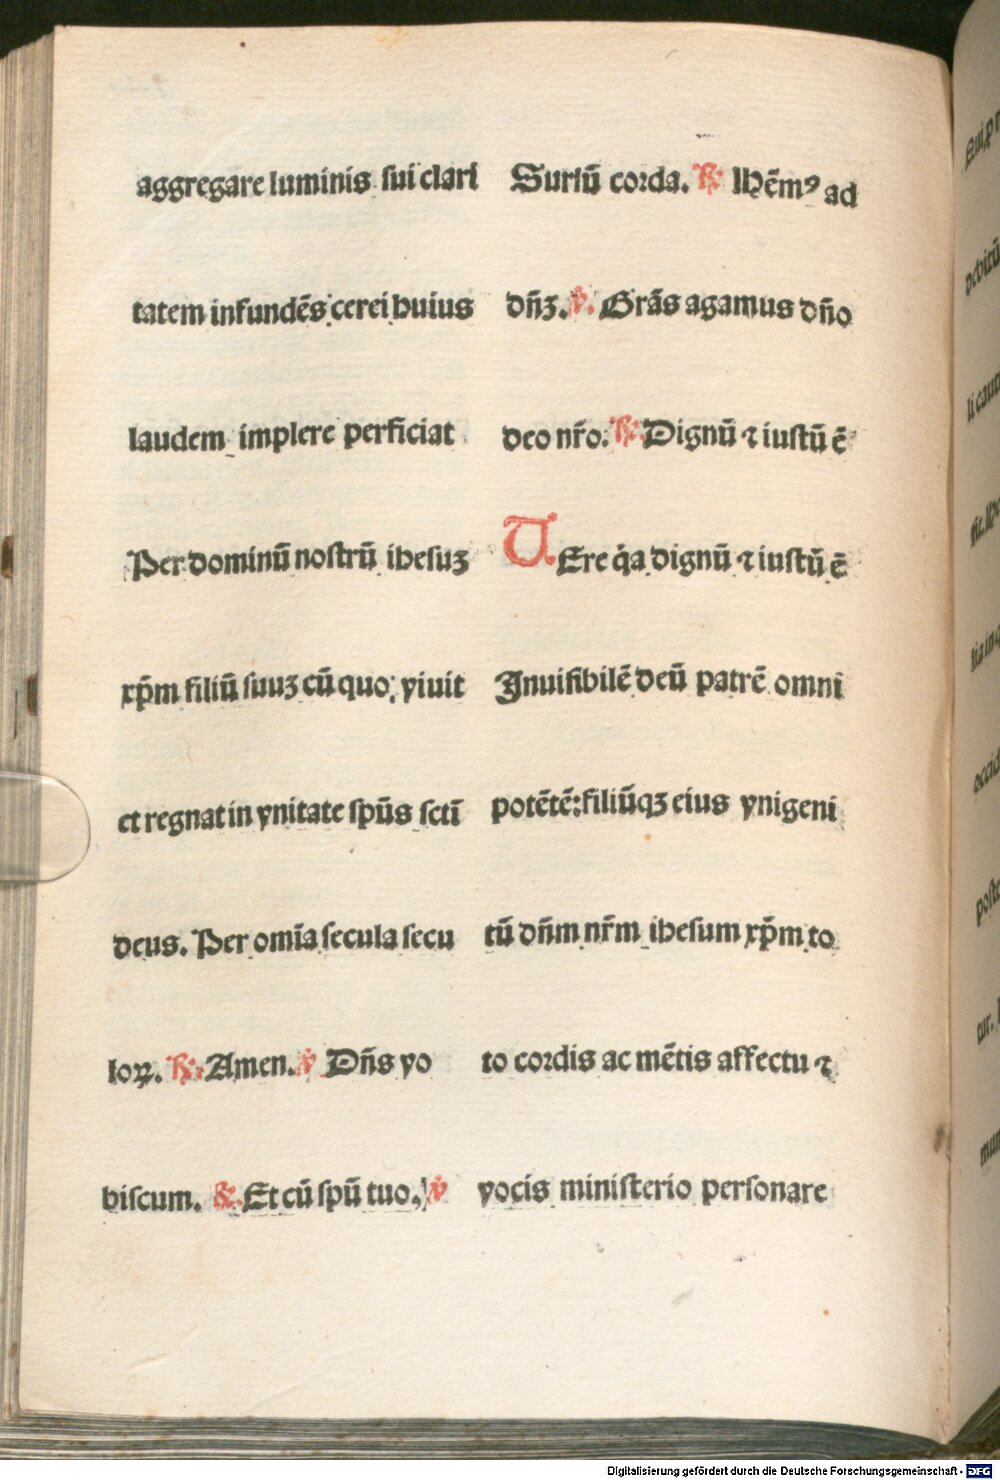 aggregare luminis sui clari
tatem infundēs cerei huius
laudem implere perficiat
Per dominū nostrū ihesuꝫ
xp̄m filiū suuꝫ cū quo: viuit
et regnat in vnitate spūs sctī
deus. Per om̄ia secula secu
loꝝ. ℟. Amen. ℣ Dn̄s vo
biscum. &. Et cū spū tuo. ℣
Sursū corda. ℟ Hēmꝰ ad
dn̄ꝫ. ℣. Grās agamus dn̄o
deo nr̄o. ℟. Dignū ⁊ iustū ē
VEre q̇a dignū ⁊ iustū ē
Inuisibilē deū patrē omni
potētē: filiūqꝫ eius vnigeni
tū dn̄m nr̄m ihesum xp̄m to
to cordis ac mētis affectu ⁊
vocis ministerio personare
Digitalisierung gefördert durch die Deutsche Forschungsgemeinschaft - DFG